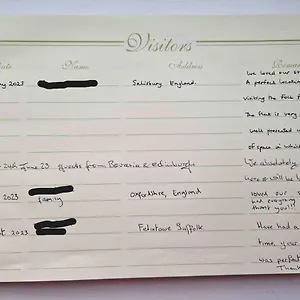 Visitors
ate Name Address Remar
We loved our st
ay 2023 Salisbury, England. A perfect location
visiting the
The flat is very
well presented
of space in
24th June 23 guests from Bavaria & edinburgh We absolutely
here & will be
2023 family Oxfordshire, England loved our
had everything
thank you!!!
st 2023 Felixstowe Suffolk Have had a
time, your
was perfect
Thank